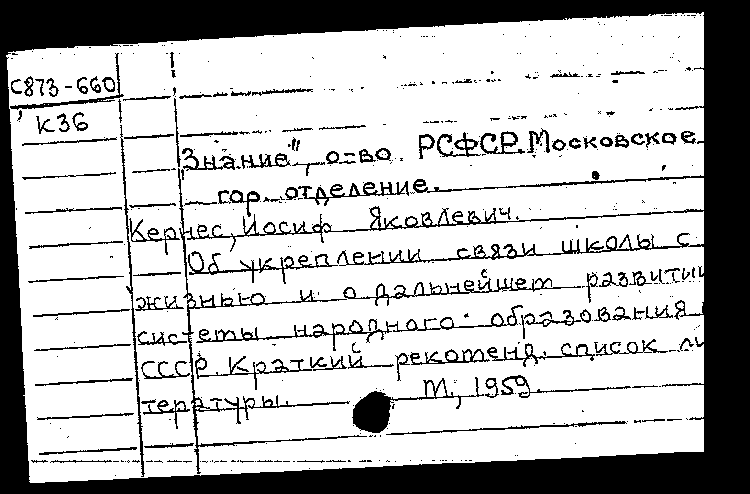 С873-660
К36
Знание", о-во. РСФСР. Московское
гор. отделение.
Кернес, Иосиф Яковлевич.
Об укреплении связи школы с
жизнью и о дальнейшем развитии
системы народного образования
СССР. Краткий рекоменд. список ли
тературы. М., 1959.